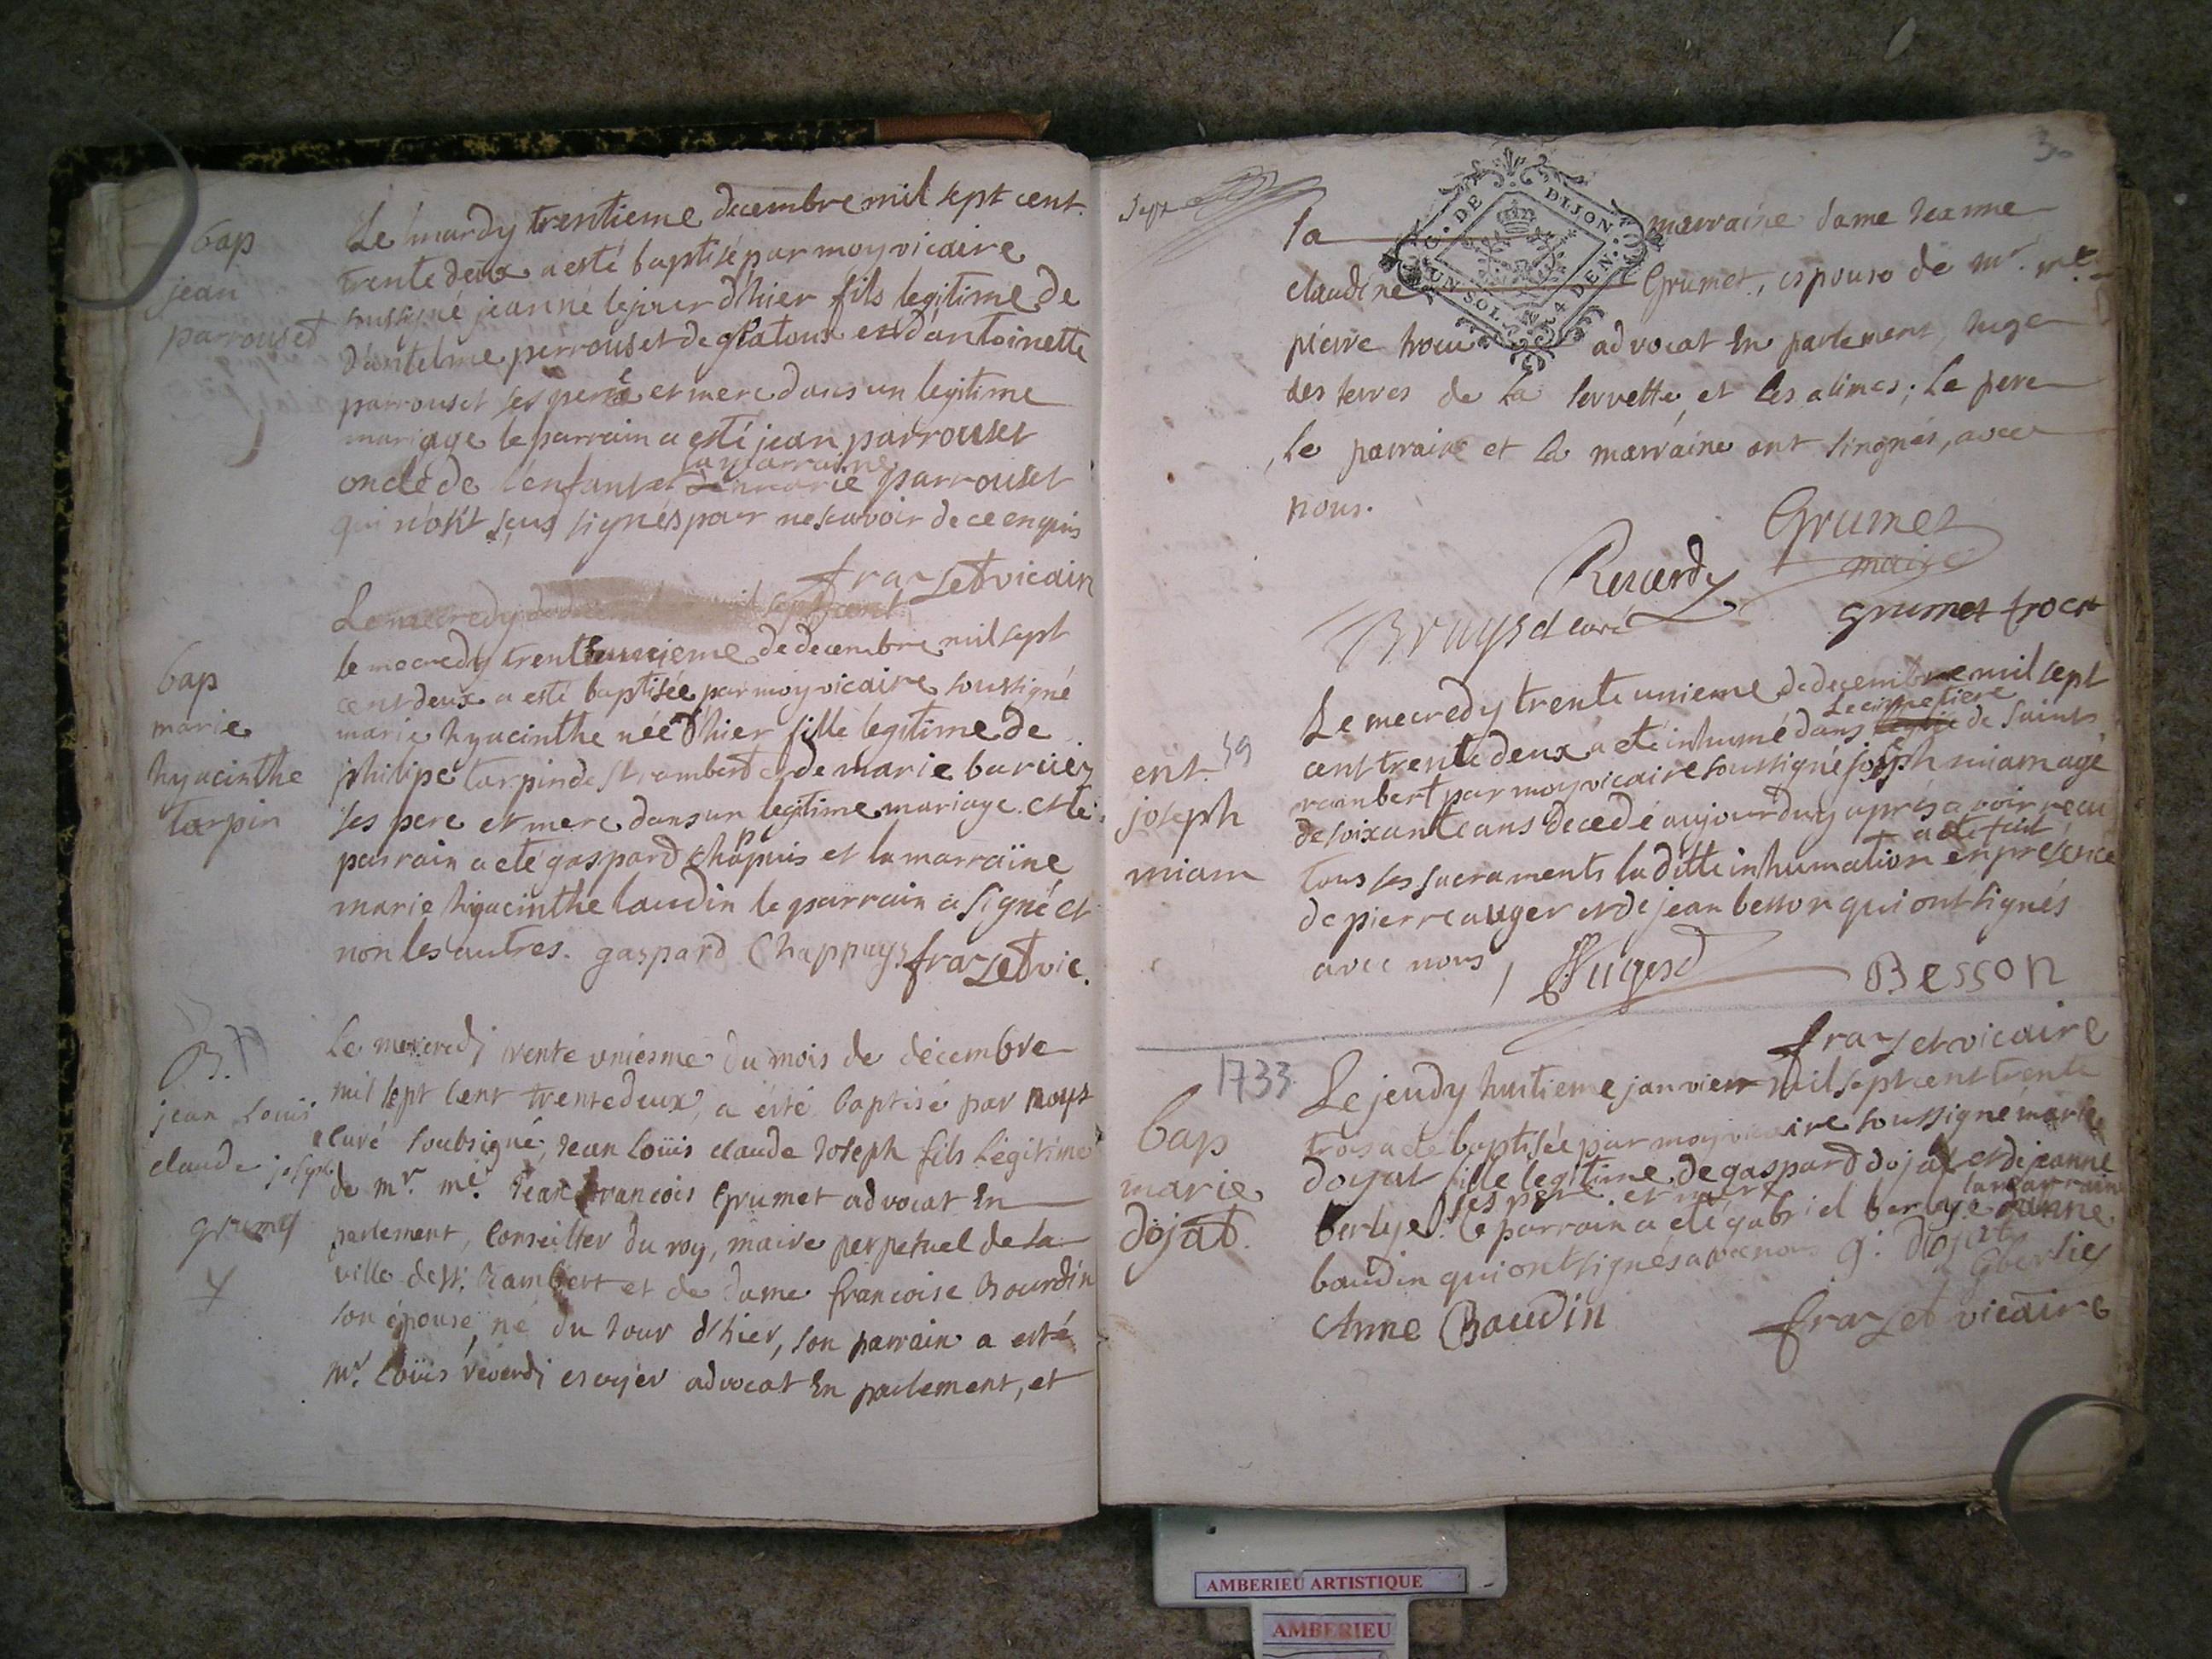 bap
jean
parrouset
Le mardy trentieme decembre mil sept cent
trente deux a esté baptisé par moy vicaire
soussigné jean né le jour d'hier fils legitime de
d'antelme perrouset de gratoux et d'antoinette
parrouset ses pere et mere dans un legitime
mariage le parrain a esté jean parrouset
oncle de l'enfant et la marraine marie parrouset
qui n'ont sçus signés pour ne scavoir de ce enquis
frazet vicair
Le mecredy
bap
marie
hyacinthe
tarpin
le mecredy trente unieme de decembre mil sept
cent deux a esté baptisée par moy vicaire soussigné
marie hyacinthe née d'hier fille legitime de
philipe tarpin de st rambert et de marie
ses pere et mere dans un legitime mariage et le
parrain a eté gaspard chapuis et la marraine
marie hyacinthe laudin le parrain a signé et
non les autres. gaspard Chappuys frazet vic.
B.
jean Louis
claude joseph
grumet
Le mercredi trente uniesme du mois de décembre
mil sept cent trente deux, a été baptisé par nous
curé soubsigné, Jean Loüis claude Joseph fils Légitime
de mr. me. Jean francois Grumet advocat En
parlement, Conseiller du roy, maire perpetuel de la
ville de st. Rambert et de dame francoise Bourdin
son épouse, né du Jour d'hier, son parrain a esté
mr. Loüis reverdi escuyer advocat En parlement, et
3
sa marraine dame Jeanne
claudine Grumet, espouse de mr. me.
pierre trocu advocat En parlement, Juge
des terres de La servette, et Les alimes; Le pere
Le parrain et La marraine ont singnés, avec
nous.
Grumet
maire
Reverdy
Bruyset curé
grumet trocu
C. DE DIJON.
UN SOL. 4 DEN.
ent. 59
joseph
miam
Le mecredy trente unieme de decembre mil sept
cent trente deux a eté inhumé dans Le cimetiere de Saint
rambert par moy vicaire soussigné joseph miam agé
de soixante ans decedé aujourd'huy aprés avoir recu
tous ses sacraments la ditte inhumation a eté fait en presence
de pierre auger et de jean besson qui ont signés
avec nous
Besson
frazet vicaire
1733
bap
marie
dojat.
Le jeudy huitieme janvier mil sept cent trente
trois a eté baptisée par moy vicaire soussigné marie
dojat fille legitime de gaspard dojat et de jeanne
berlye ses pere et mere le parrain a eté gabriel berlye la marraine anne
baudin qui ont signés avec nous g. dojat
gberlie
Anne Baudin
frazet vicaire
AMBERIEU ARTISTIQUE
AMBERIEU